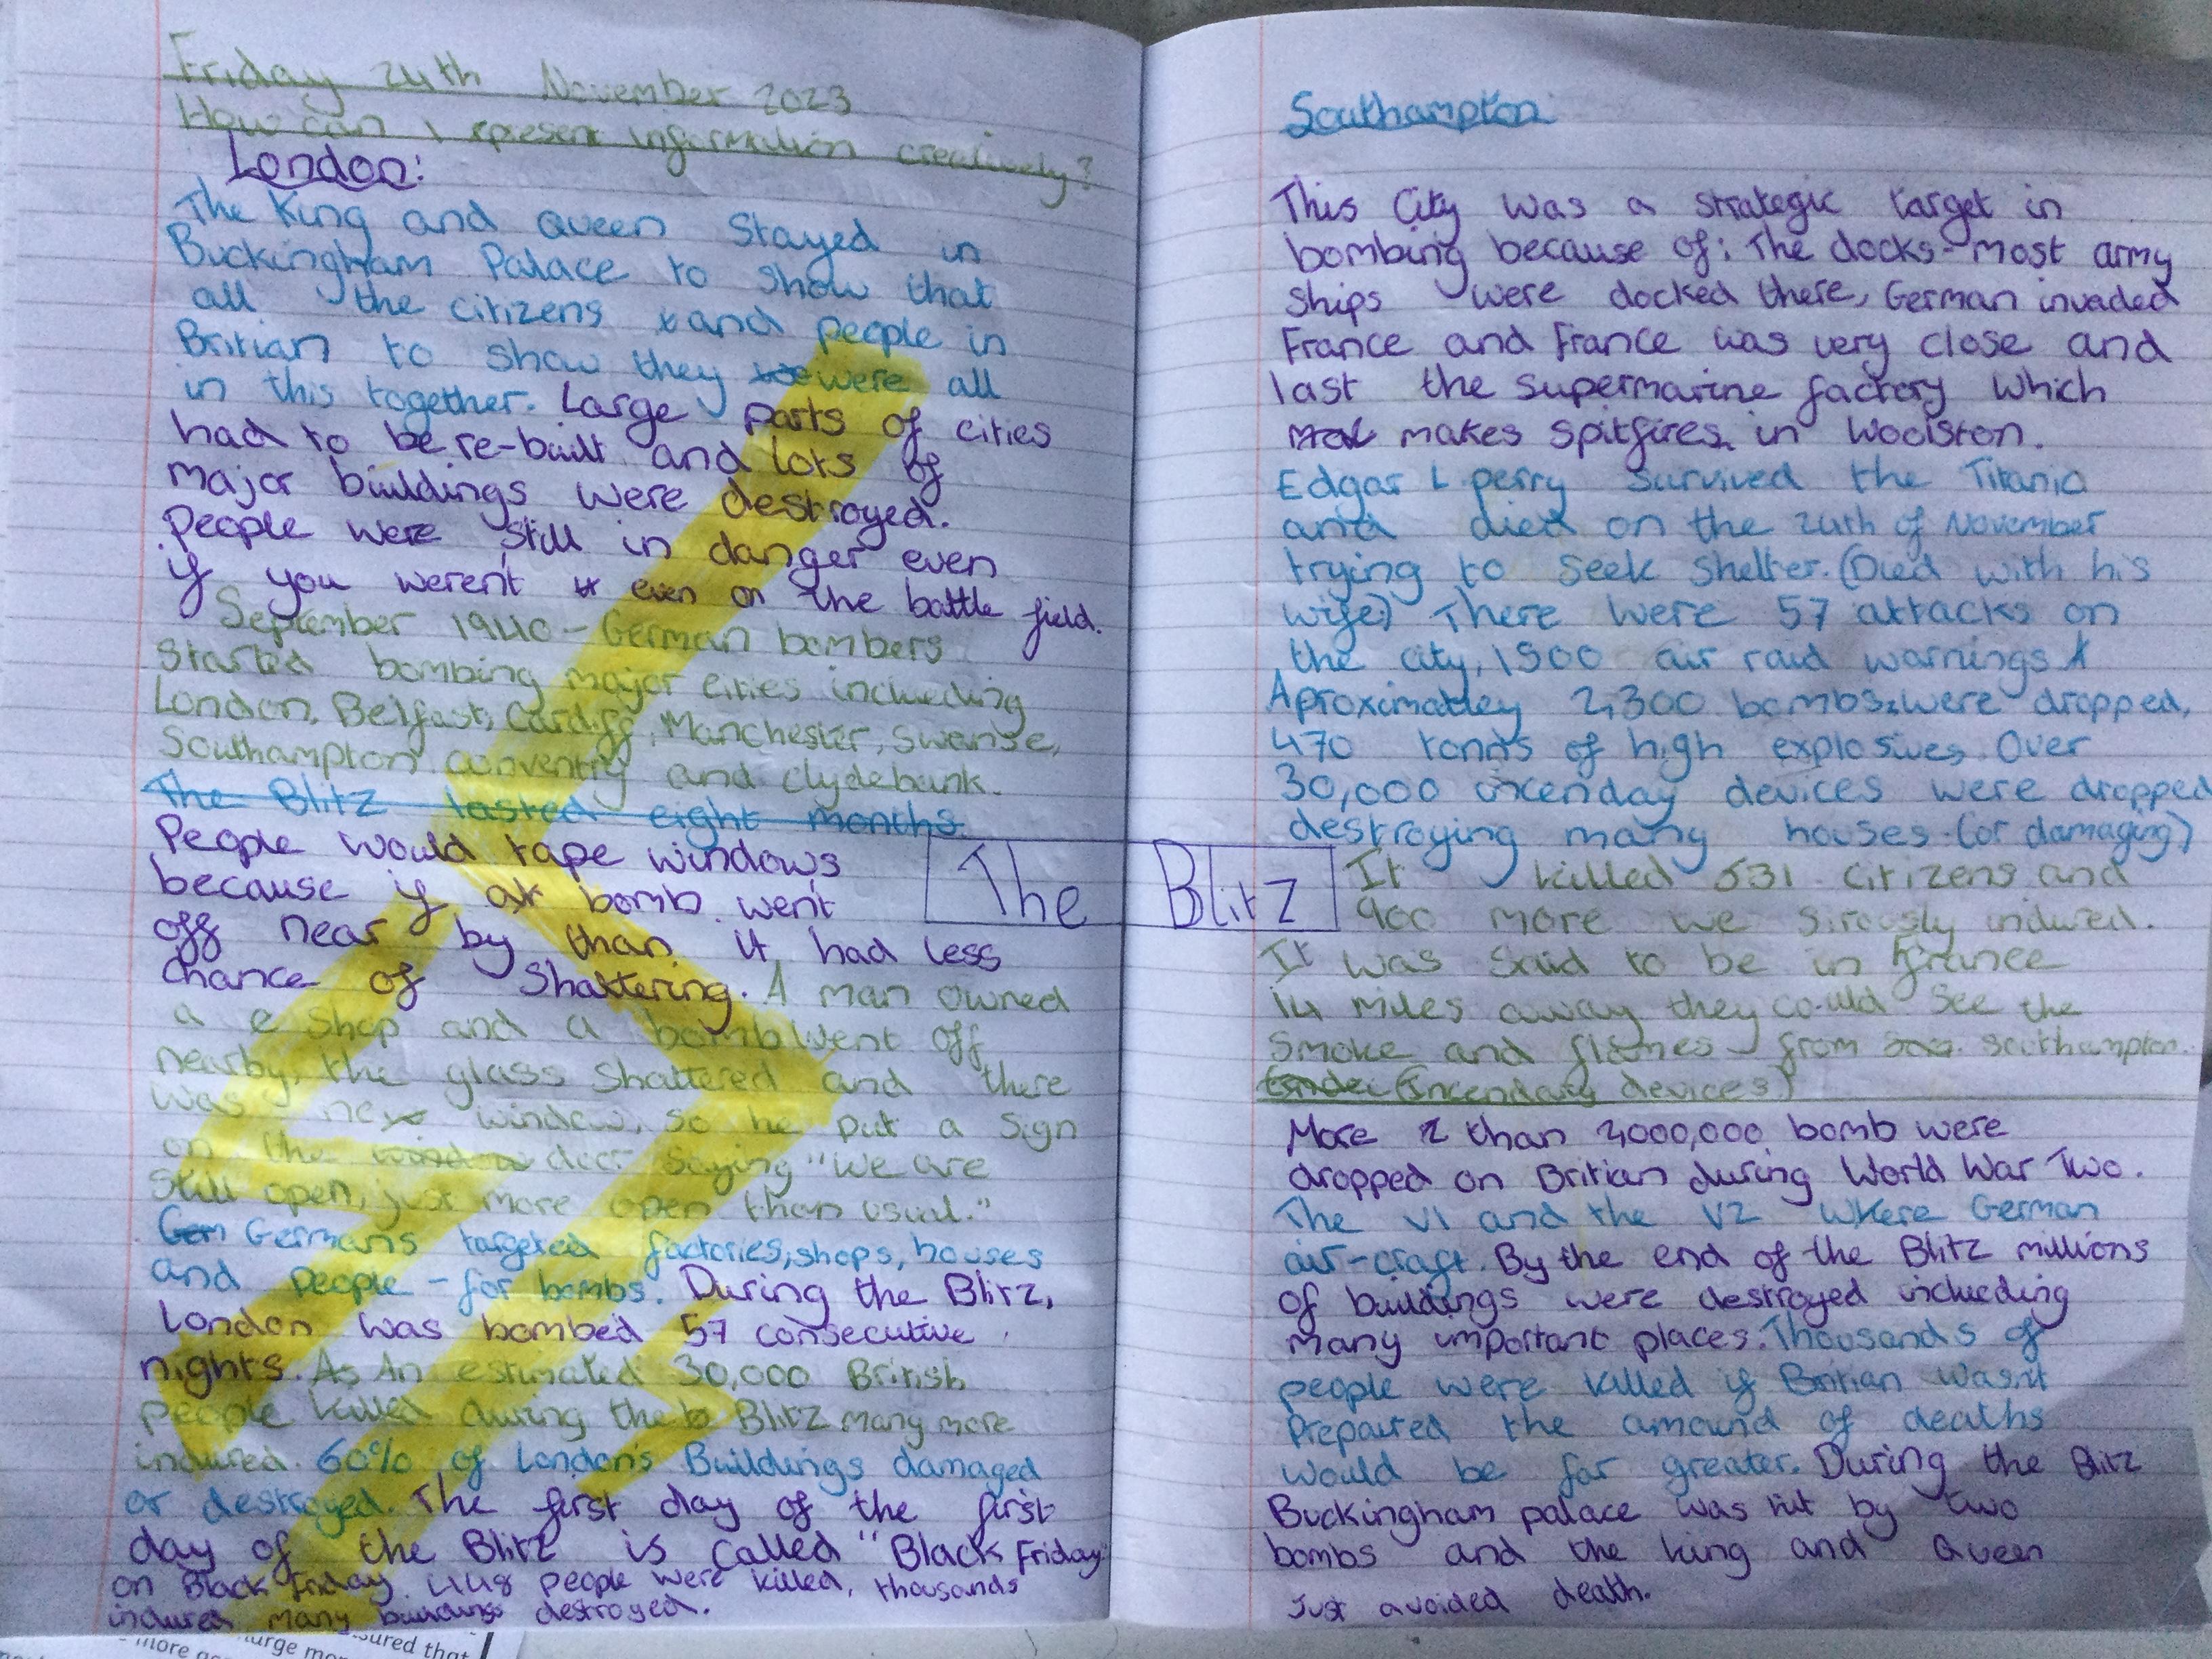 Friday 24th November 2023
How can I epresent information creatively?
London:
The King and Queen Stayed in
Buckingham Palace to show that
all the citizens and people in
Britian to show they were all
in this together. Large parts of cities
had to be re-built and lots of
major buildings were destroyed.
People were still in danger even
if you weren't even on the battle field.
September 1940 - German bombers
started bombing major cities inclueding
London, Belfast, Cardiff, Manchester, Swense,
Southampton conventry and clydebank.
The Blitz lasted eight months.
People would tape windows
because if a bomb went
off near by than it had less
chance of Shattering. A man owned
a shop and a bomb went off
nearby, the glass shattered and there
was new window, so he put a sign
on the window door saying "We are
still open, just more open than usual."
Ger Germans targeted factories, shops, houses
and people - for bombs. During the Blitz,
London was bombed 57 consecutive
nights. As An estimated 30,000 British
people killed during the b Blitz many more
indured. 60% of London's Buildings damaged
or destroyed. The first day of the first
day of the Blitz is called "Black Friday
on Black Friday 448 people were killed, thousands
indured many buildings destroyed.
The Blitz
Southampton
This City was a strategic target in
bombing because of: The docks - most army
ships were docked there, German invaded
France and France was very close and
last the supermarine factory which
makes spitfires in Woolston.
Edgar L perry survived the Titanic
and died on the 24th of November
trying to seek shelter. (Died with his
wife) There were 57 attacks on
the city, 1500 air raid warnings A
Aproximatley 2,300 bombs were dropped,
470 tonds of high explosives Over
30,000 incenday devices were dropped
destroying many houses. (or damaging)
It killed 631 citizens and
900 more we sirously indured.
It was said to be in France
14 miles away they could see the
smoke and flames from Southampton.
(Incendary devices)
More than 2,000,000 bomb were
dropped on Britian during World War Two.
The V1 and the V2 where German
air-craft. By the end of the Blitz millions
of buildings were destroyed inclueding
many important places. Thousands of
people were killed if Britian wasn't
Prepaired the amound of deaths
would be far greater. During the Blitz
Buckingham palace was hit by two
bombs and the king and Queen
just avoided death.
more
large
sured that